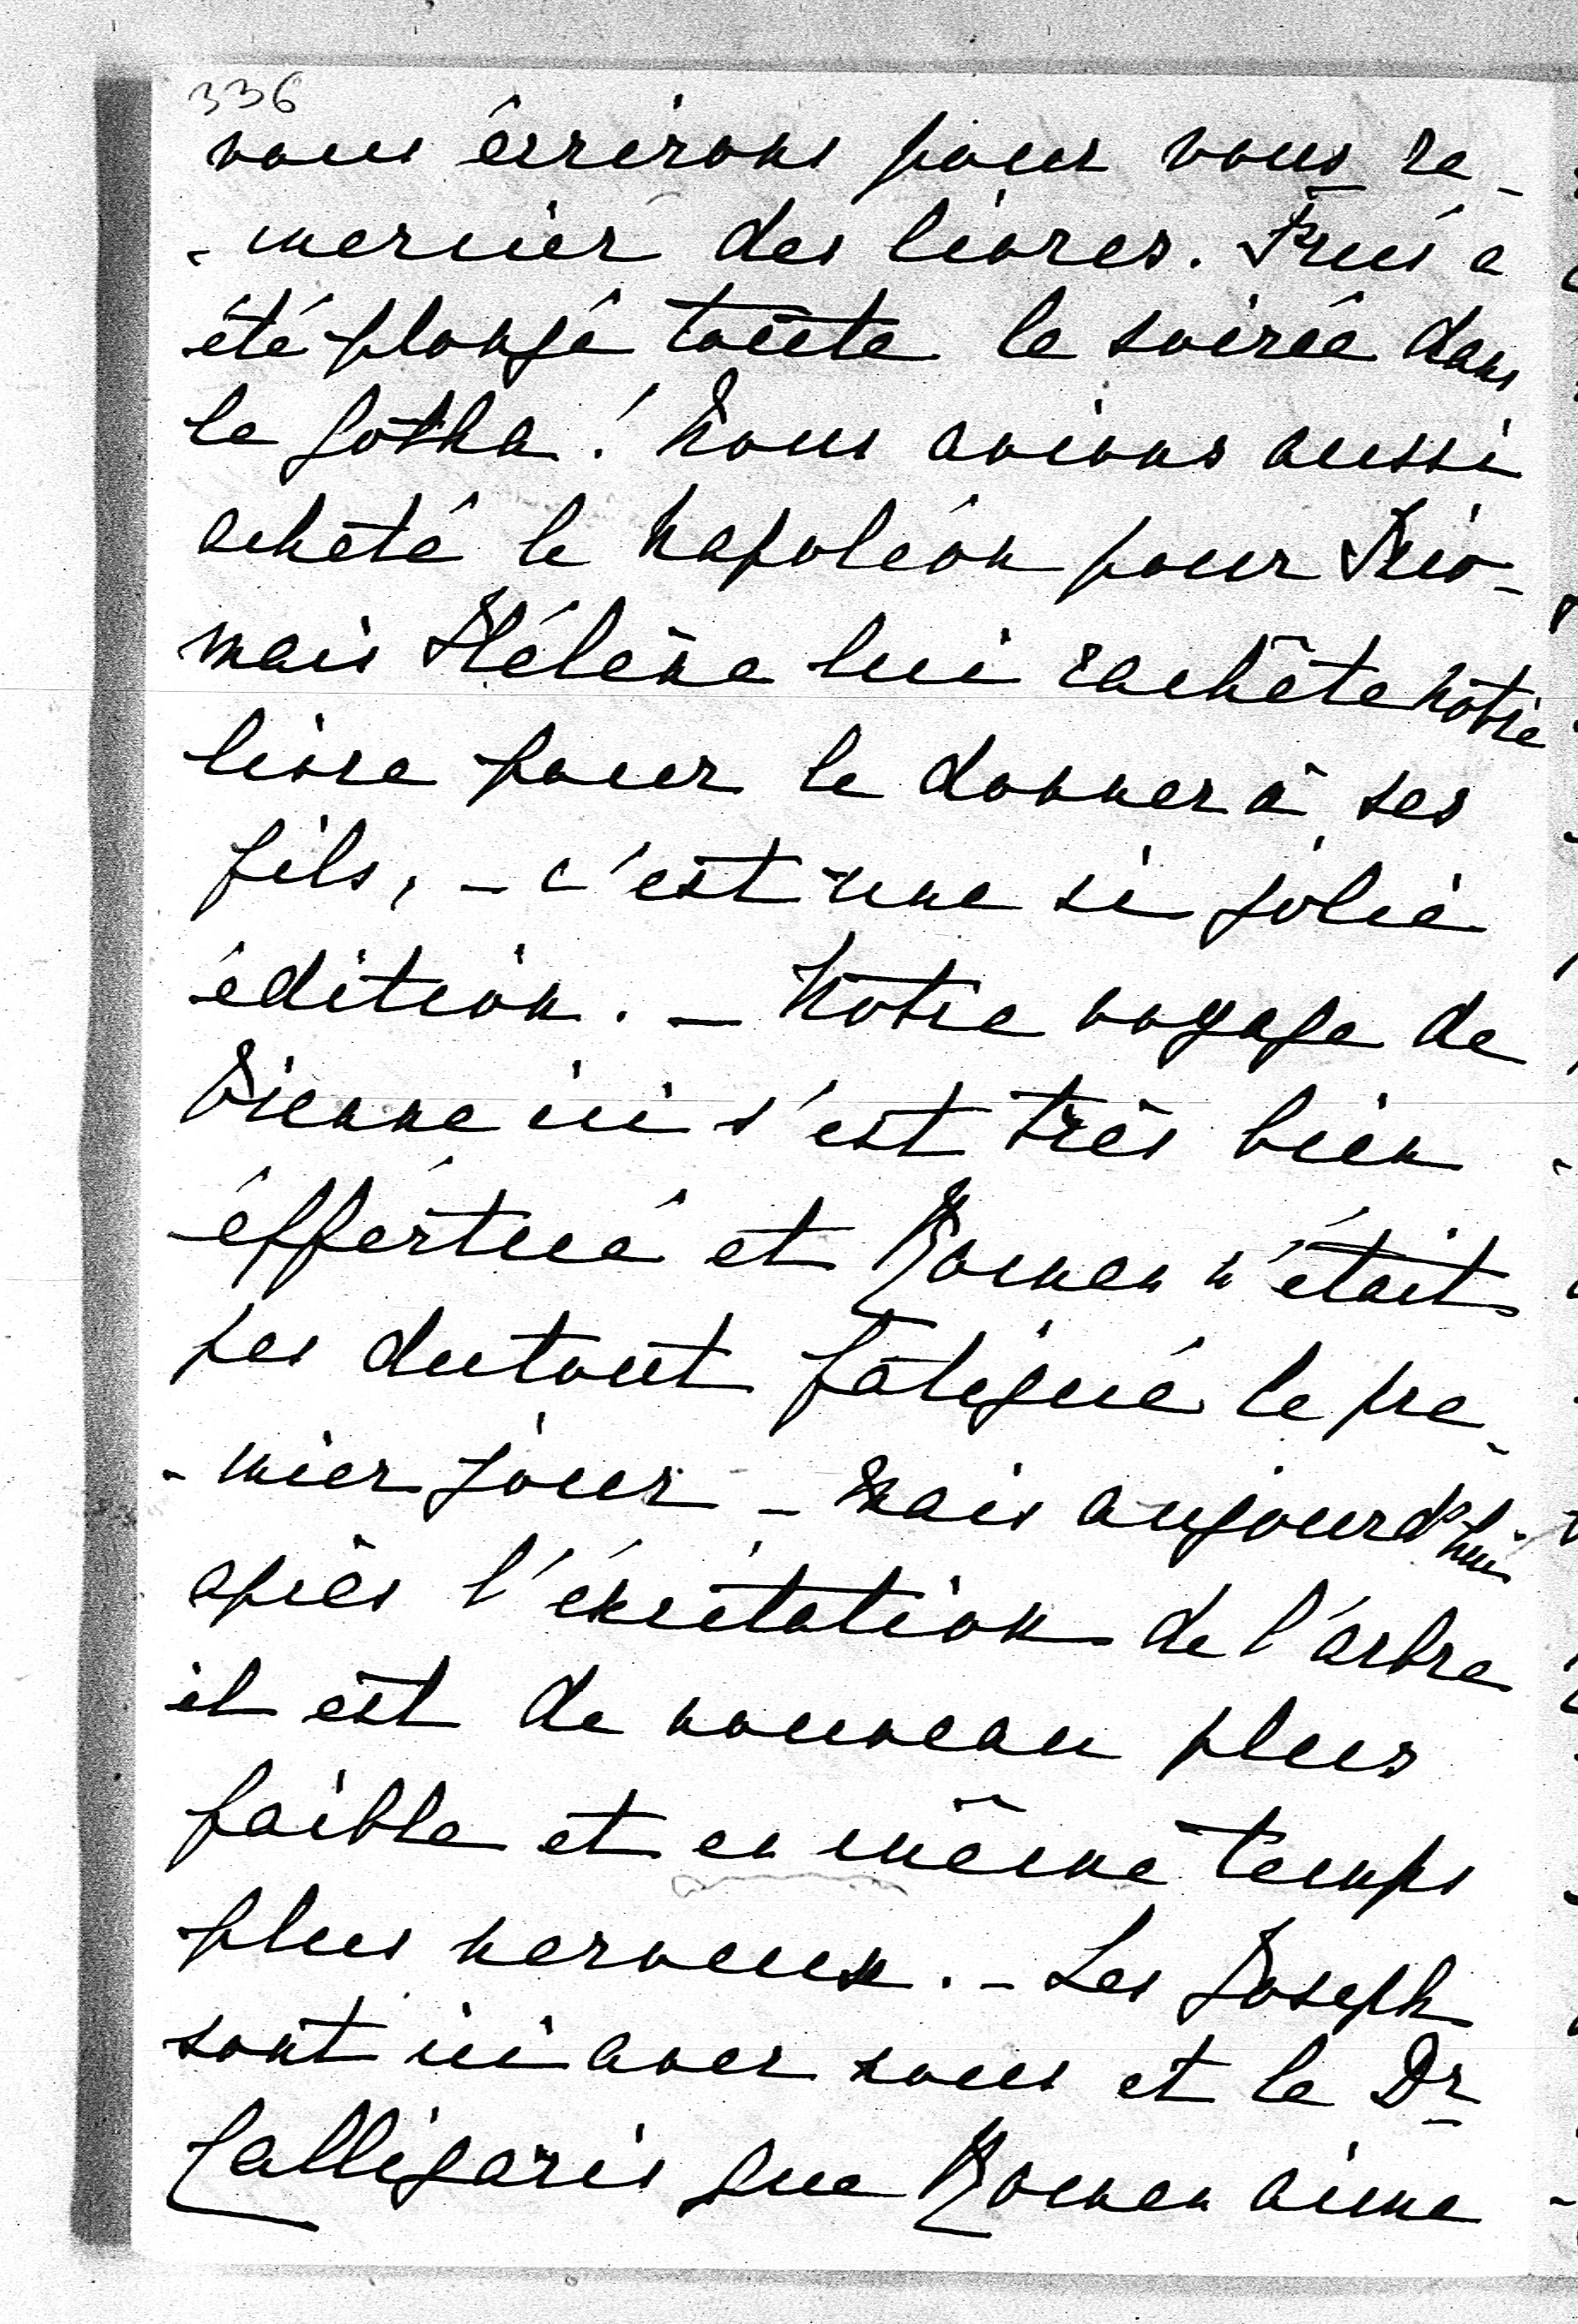 336
vous écrirons pour vous re-
-mercier des livres. Friés a
été plongé toute la soirée dans
le Gotha! Nous avions aussi
acheté le Napoléon pour Trio-
mais Hélène lui rachète notre
livre pour le donner à ses
fils, - c'est une si jolie
édition. - Notre voyage de
Vienne ici s'est très bien
éffectué et Roman n'était
pas dutout fatigué le pre-
-mier jour - mais aujourd'hui
après l'éxcitation de l'arbre
il est de nouveau plus
faible et en même temps
plus nerveux. - Les Joseph
sont ici avec nous et le Dr
Calligaris que Roman aime